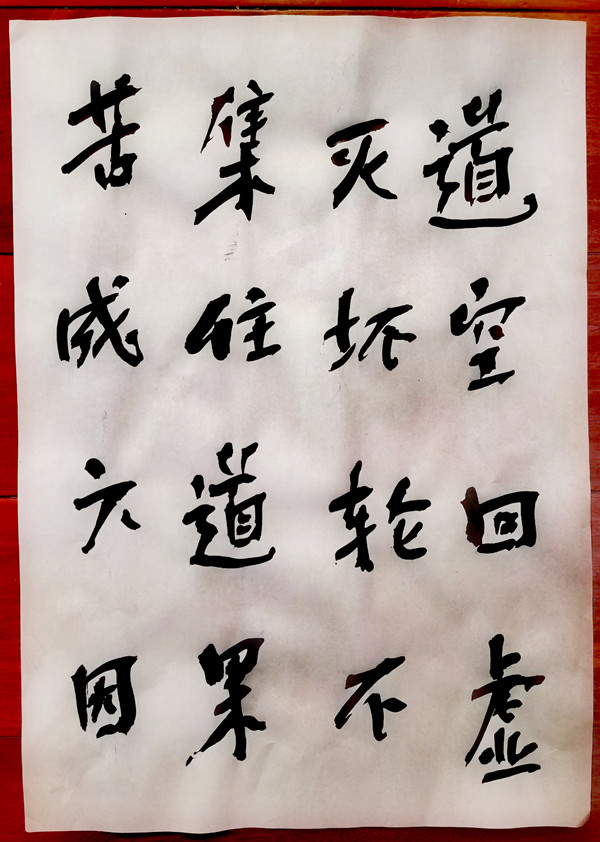 苦集灭道
成住坏空
六道轮回
因果不虚